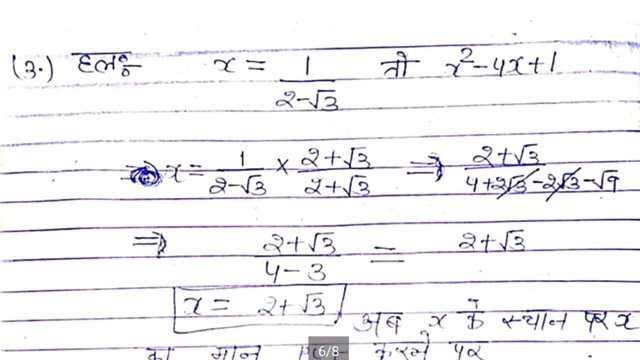 (3.) हलः- x = 1/(2-√3) तो x²-4x+1
⇒ x = 1/(2-√3) × (2+√3)/(2+√3) ⇒ (2+√3)/(4+2√3-2√3-√9)
⇒ (2+√3)/(4-3) = 2+√3
x = 2+√3 अब x के स्थान पर x
का मान करने पर
6/8